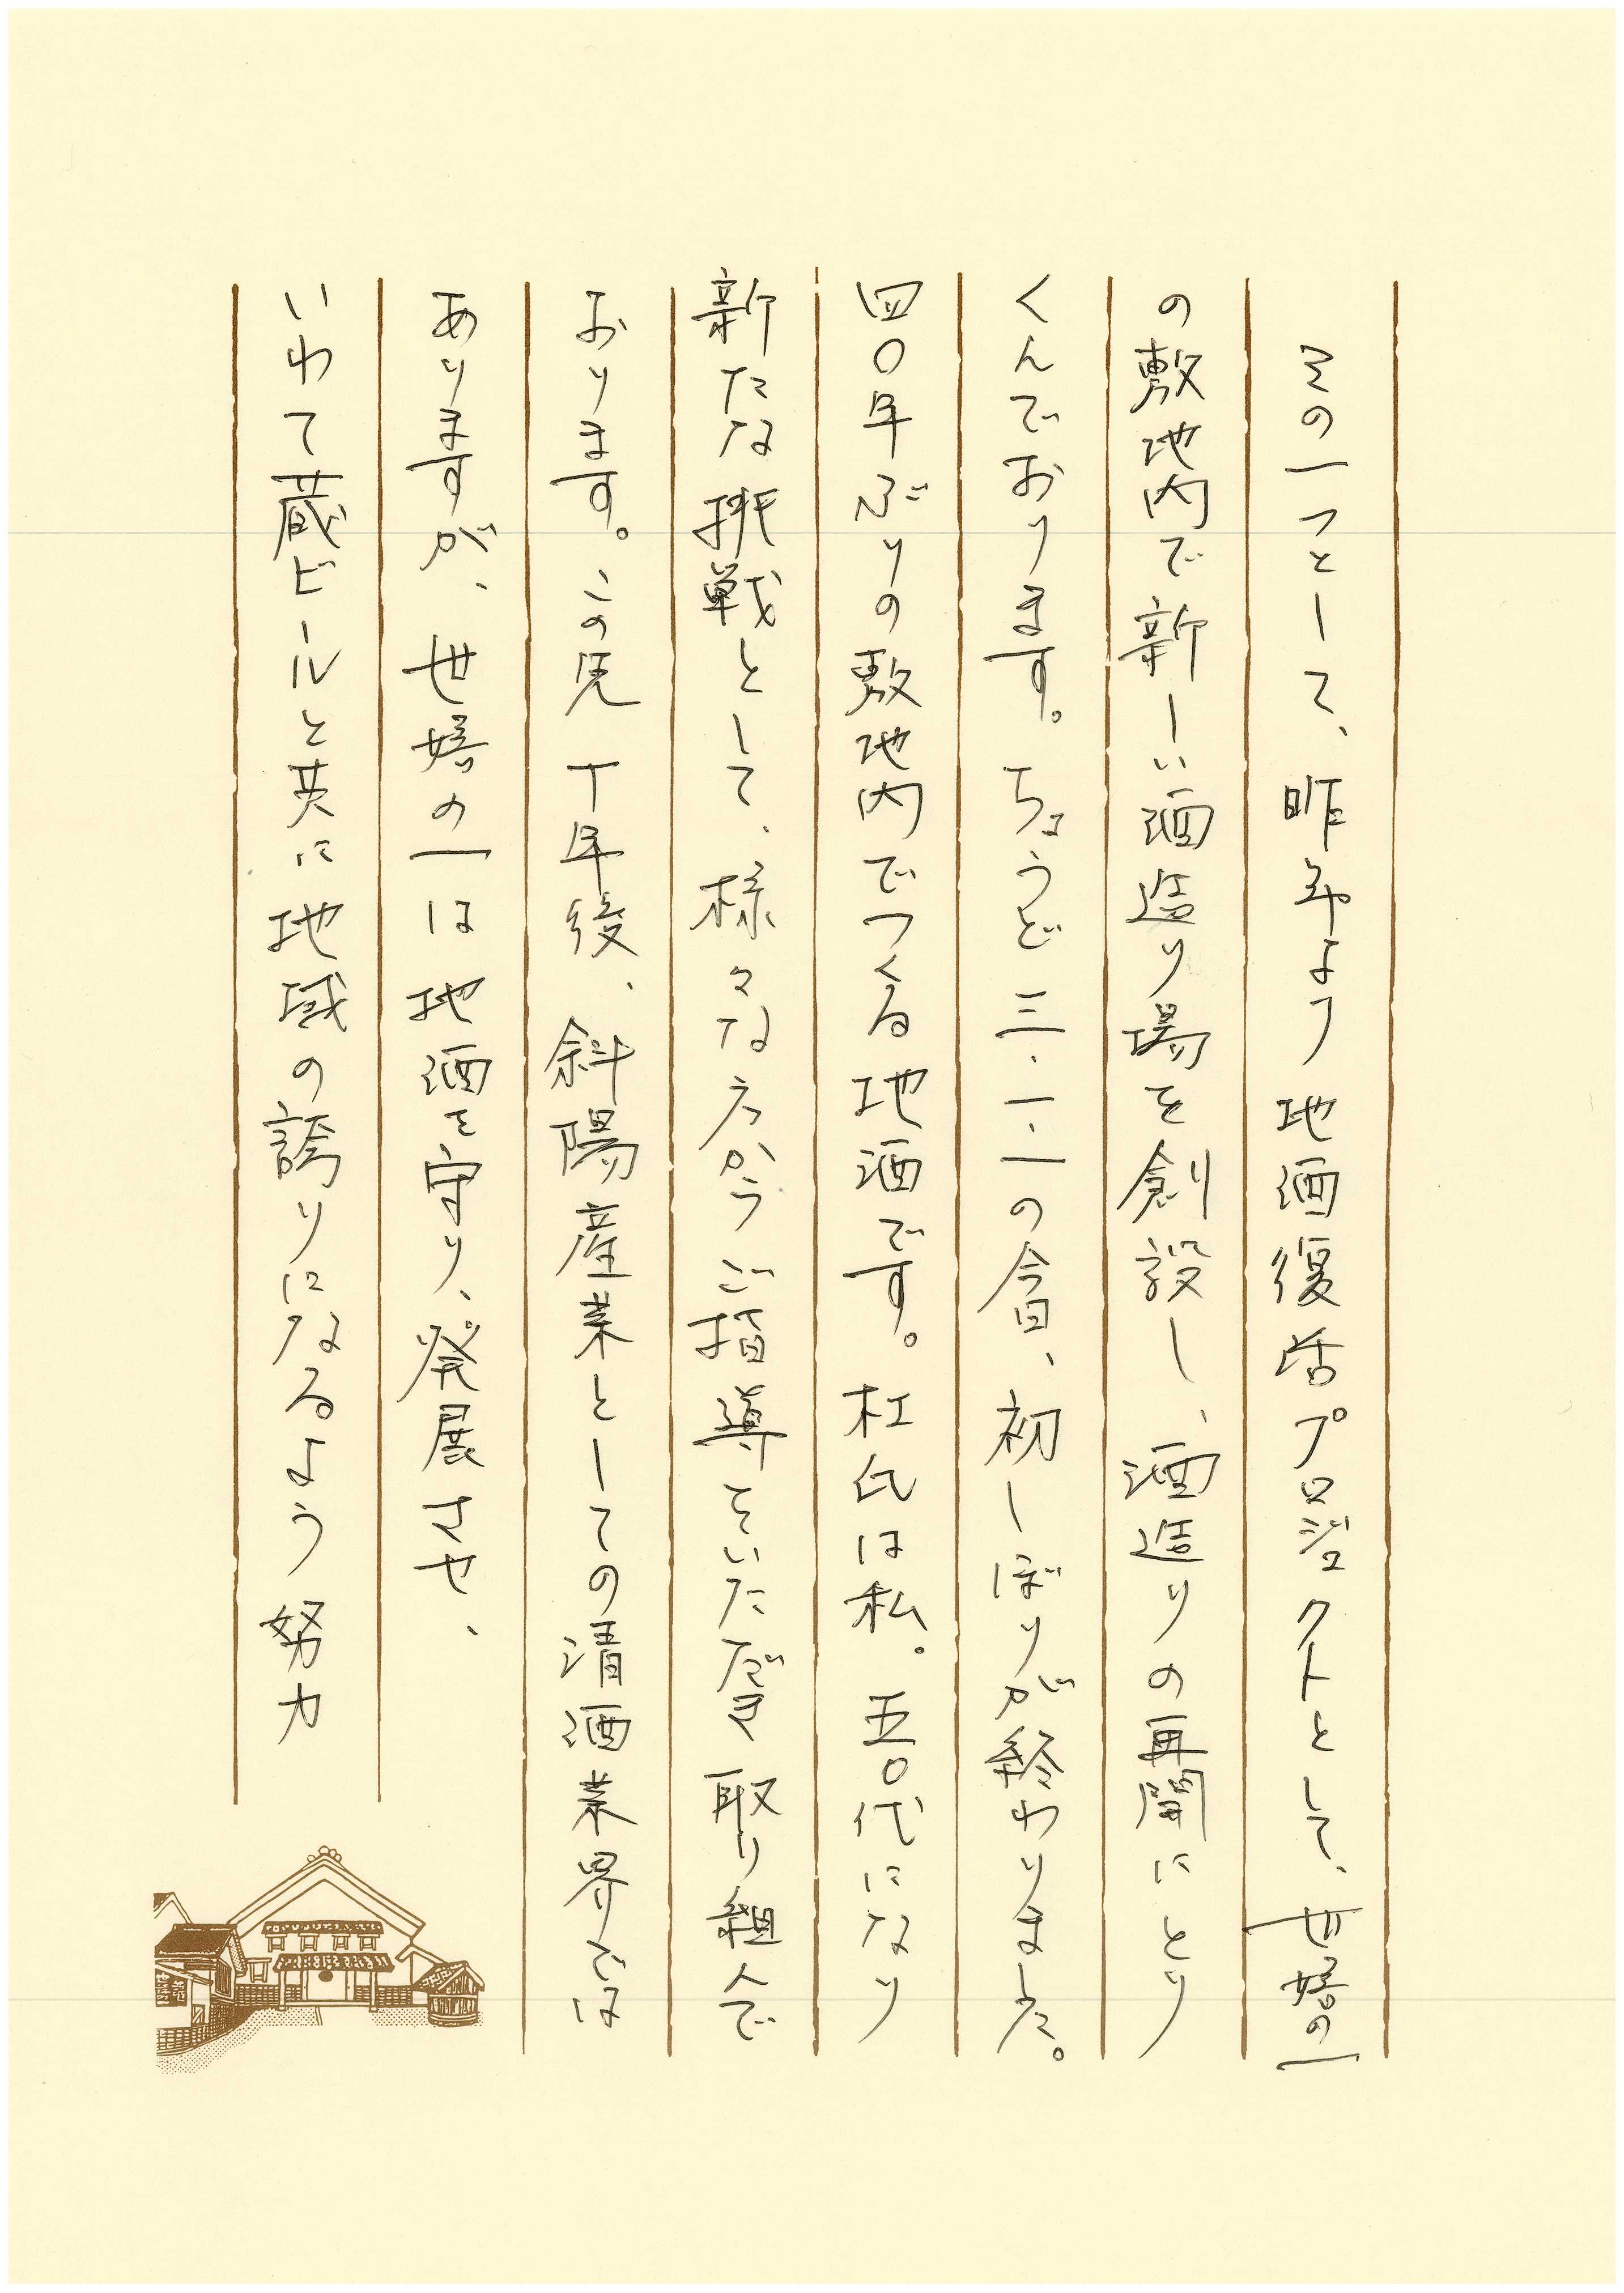 その一つとして、昨年より地酒復活プロジェクトとして、世嬉の一
の敷地内で新しい酒造り場を創設し、酒造りの再開にとり
くんでおります。ちょうど三・一一の今日、初しぼりが終わりました。
四〇年ぶりの敷地内でつくる地酒です。杜氏は私。五〇代になり
新たな挑戦として、様々な方からご指導をいただき取り組んで
おります。この先十年後、斜陽産業としての清酒業界では
ありますが、世嬉の一は地酒を守り、発展させ、
いわて蔵ビールと共に地域の誇りになるよう努力